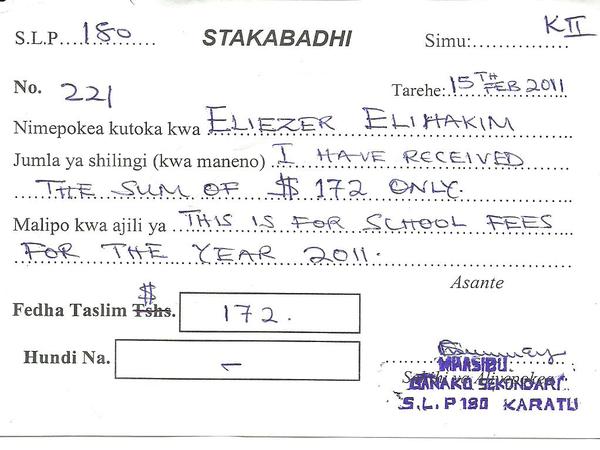 S.L.P. 180 STAKABADHI Simu: KII
No. 221 Tarehe: 15TH FEB 2011
Nimepokea kutoka kwa ELIEZER ELIHAKIM
Jumla ya shilingi (kwa maneno) I HAVE RECEIVED
THE SUM OF $ 172 ONLY.
Malipo kwa ajili ya THIS IS FOR SCHOOL FEES
FOR THE YEAR 2011.
Asante
$
Fedha Taslim Tshs. 172.
Hundi Na. -
MHASIBU
BANAKO SEKONDARI
S.L.P 180 KARATU